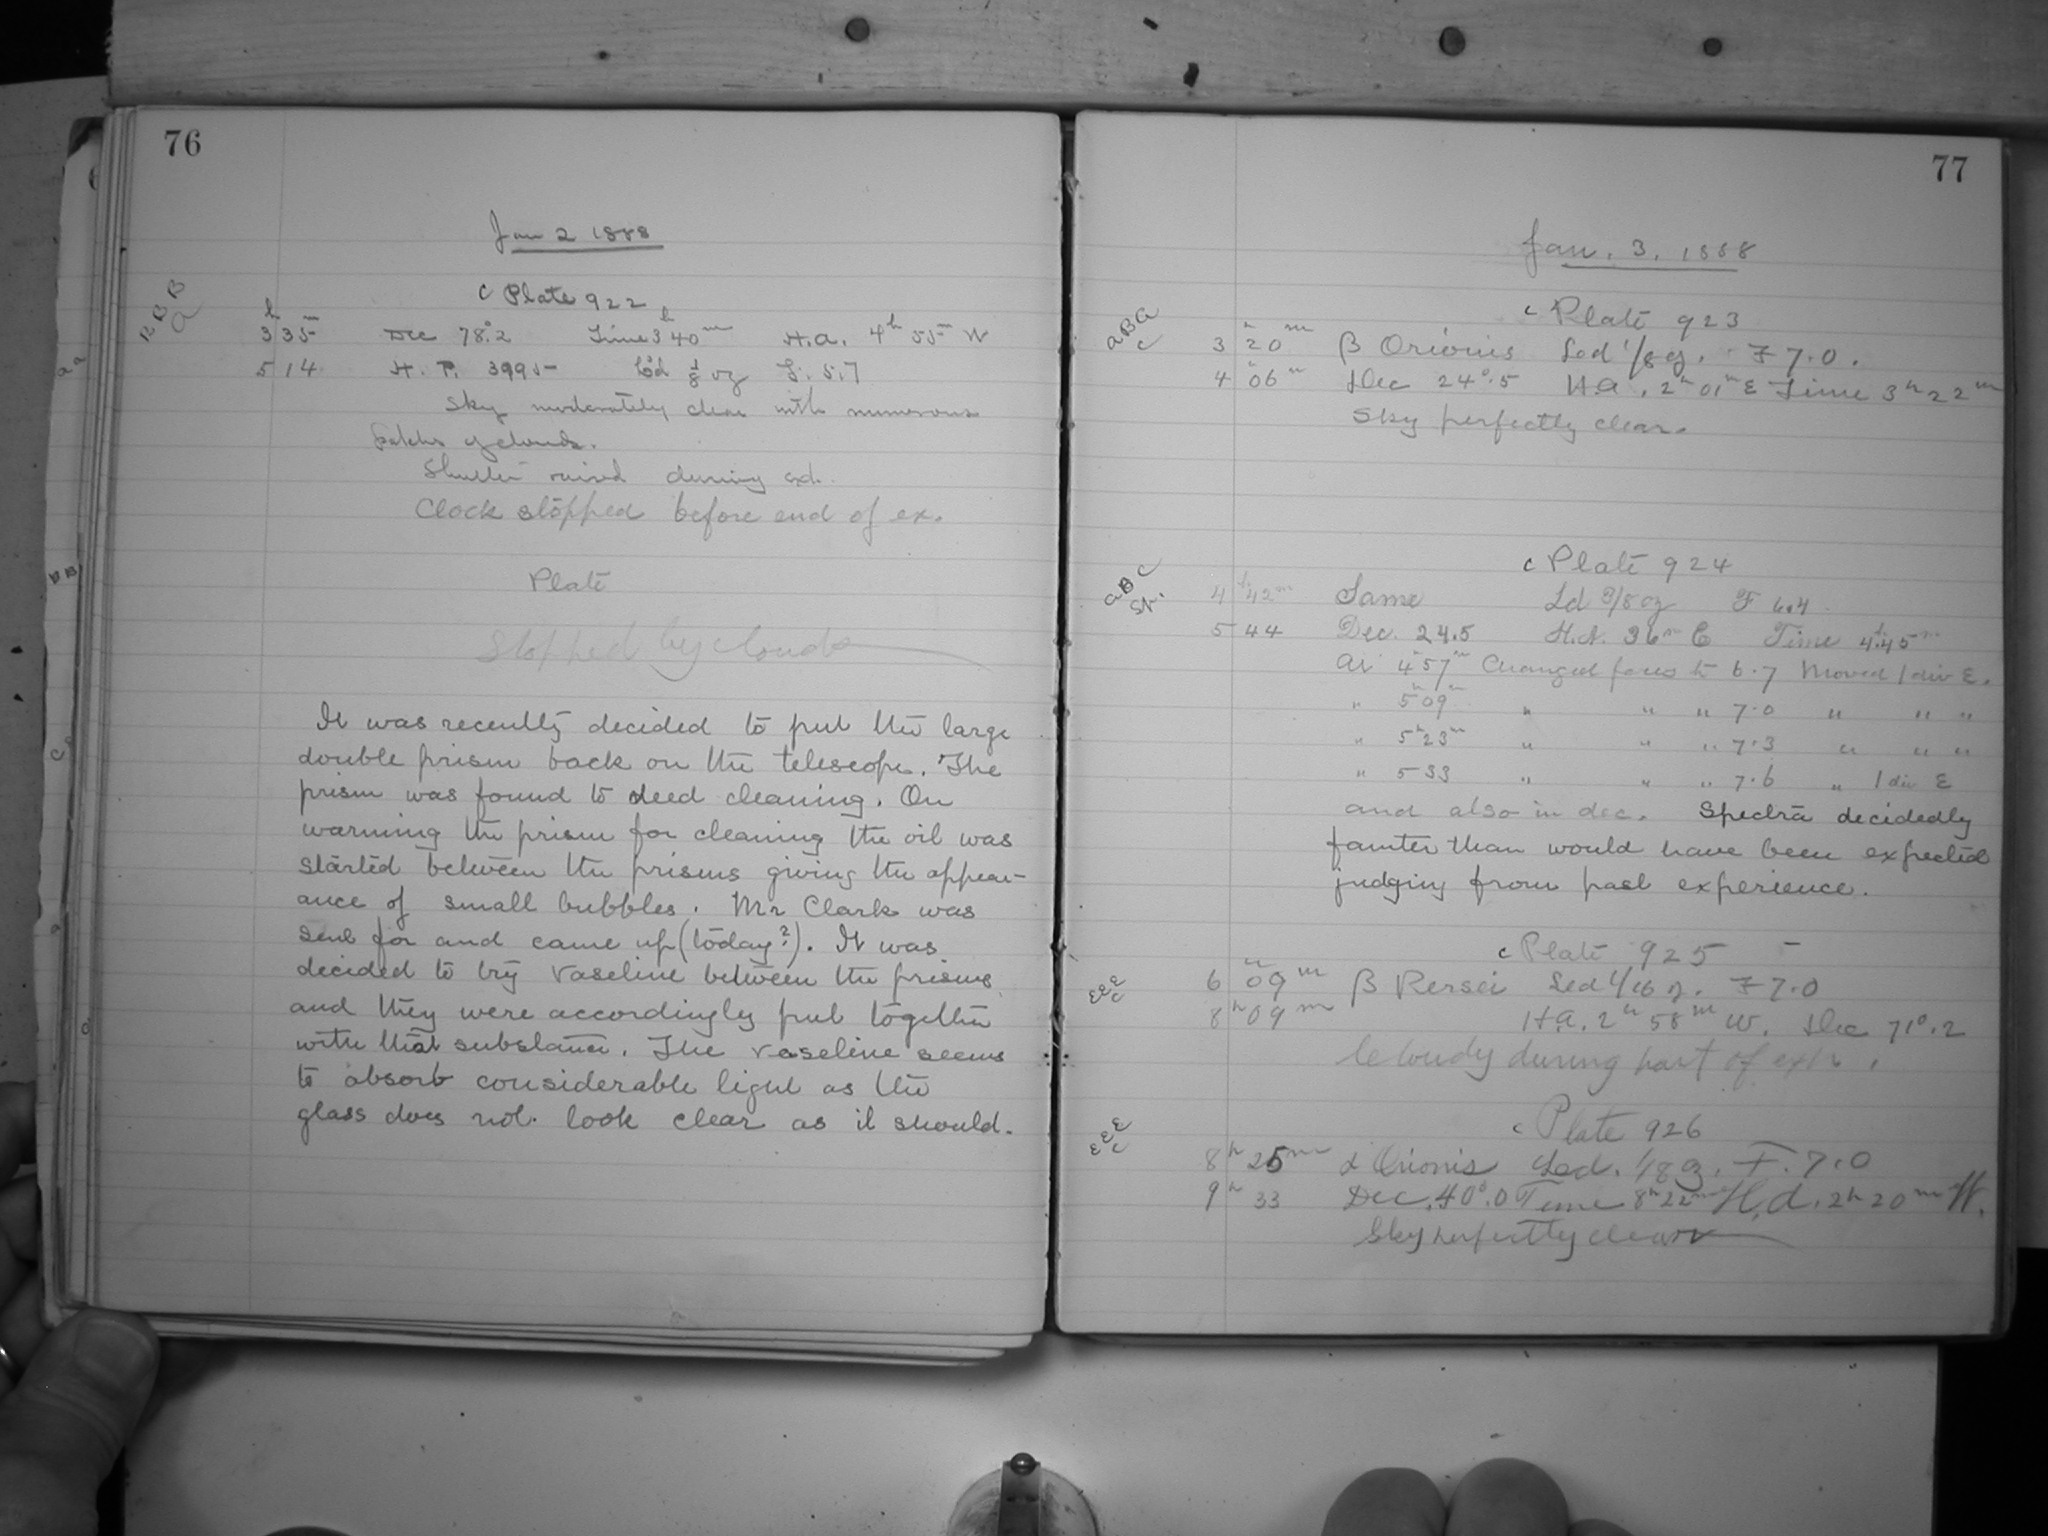 76
Jan 2 1888
c Plate 922
3h 35m Dec 78°.2 Time 3h 40m H.A. 4h 55m W
5 14 H. P. 3995 Ld 1/8 oz F. 5.7
Sky moderately clear with numerous
patches of clouds.
Shutter raised during ex.
Clock stopped before end of ex.
Plate
Stopped by clouds
It was recently decided to put the large
double prism back on the telescope. The
prism was found to need cleaning. On
warming the prism for cleaning the oil was
started between the prisms giving the appear-
ance of small bubbles. Mr Clark was
sent for and came up (today?). It was
decided to try vaseline between the prisms
and they were accordingly put together
with that substance. The vaseline seems
to absorb considerable light as the
glass does not look clear as it should.
77
Jan. 3. 1888
c Plate 923
aBa
c
3h 20m β Orionis Led 1/8 oz. F 7.0.
4h 06m Dec 24°.5 H.a. 2h 01m E Time 3h 22m
Sky perfectly clear.
c Plate 924
aBc
St.
4h 42m Same Ld 3/8 oz F 6.4
5 44 Dec. 24.5 H.A. 36m E Time 4h 45m
At 4h 57m Changed focus to 6.7 Moved 1 div E.
" 5h 09m " " " 7.0 " " "
" 5h 23m " " " 7.3 " " "
" 5 33 " " " 7.6 " 1 div E
and also in dec. Spectra decidedly
fainter than would have been expected
judging from past experience.
c Plate 925 -
EEE
c
6h 09m β Persei Led 1/16 oz. F 7.0
8h 09m H.a. 2h 58m W. Dec 71°.2
Cloudy during part of exp.
c Plate 926
EEE
c
8h 25m α Orionis Led. 1/8 oz. F. 7.0
9h 33 Dec. 40°.0 Time 8h 22m H.A. 2h 20m W.
Sky perfectly clear